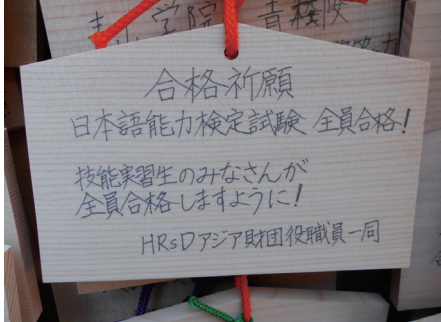 合格祈願
日本語能力検定試験 全員合格!
技能実習生のみなさんが
全員合格しますように!
HRsDアジア財団役職員一同